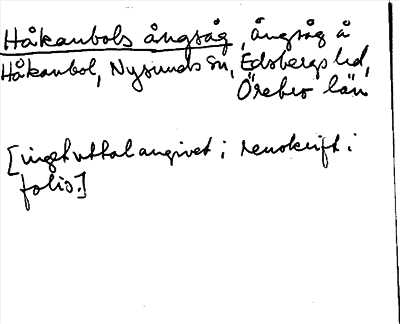 Håkanbols ångsåg, ångsåg å
Håkanbol, Nysunds sn, Edsbergs hd,
Örebro län
[inget uttal angivet i renskrift i
folio.]